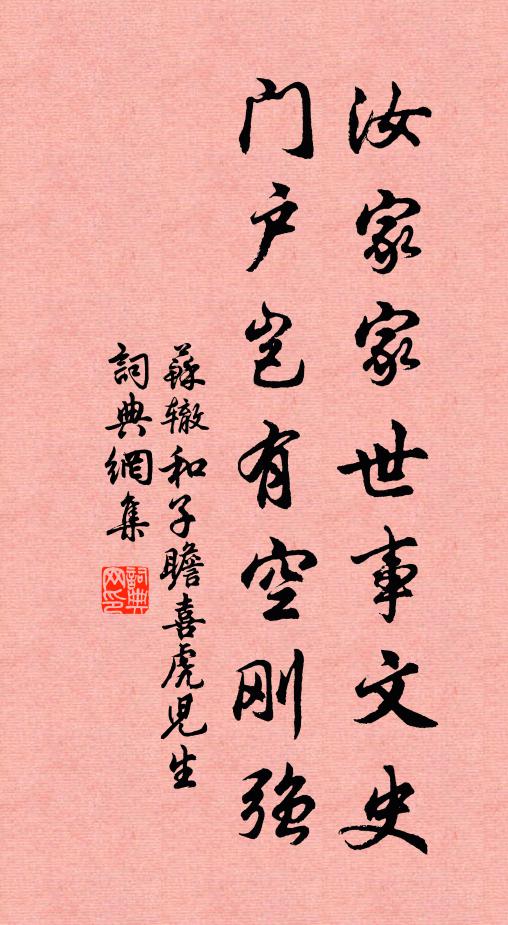 汝家家世事文史
门户岂有空刚强
蘇辙和子瞻喜虎児生
詞典網集
詞典网印